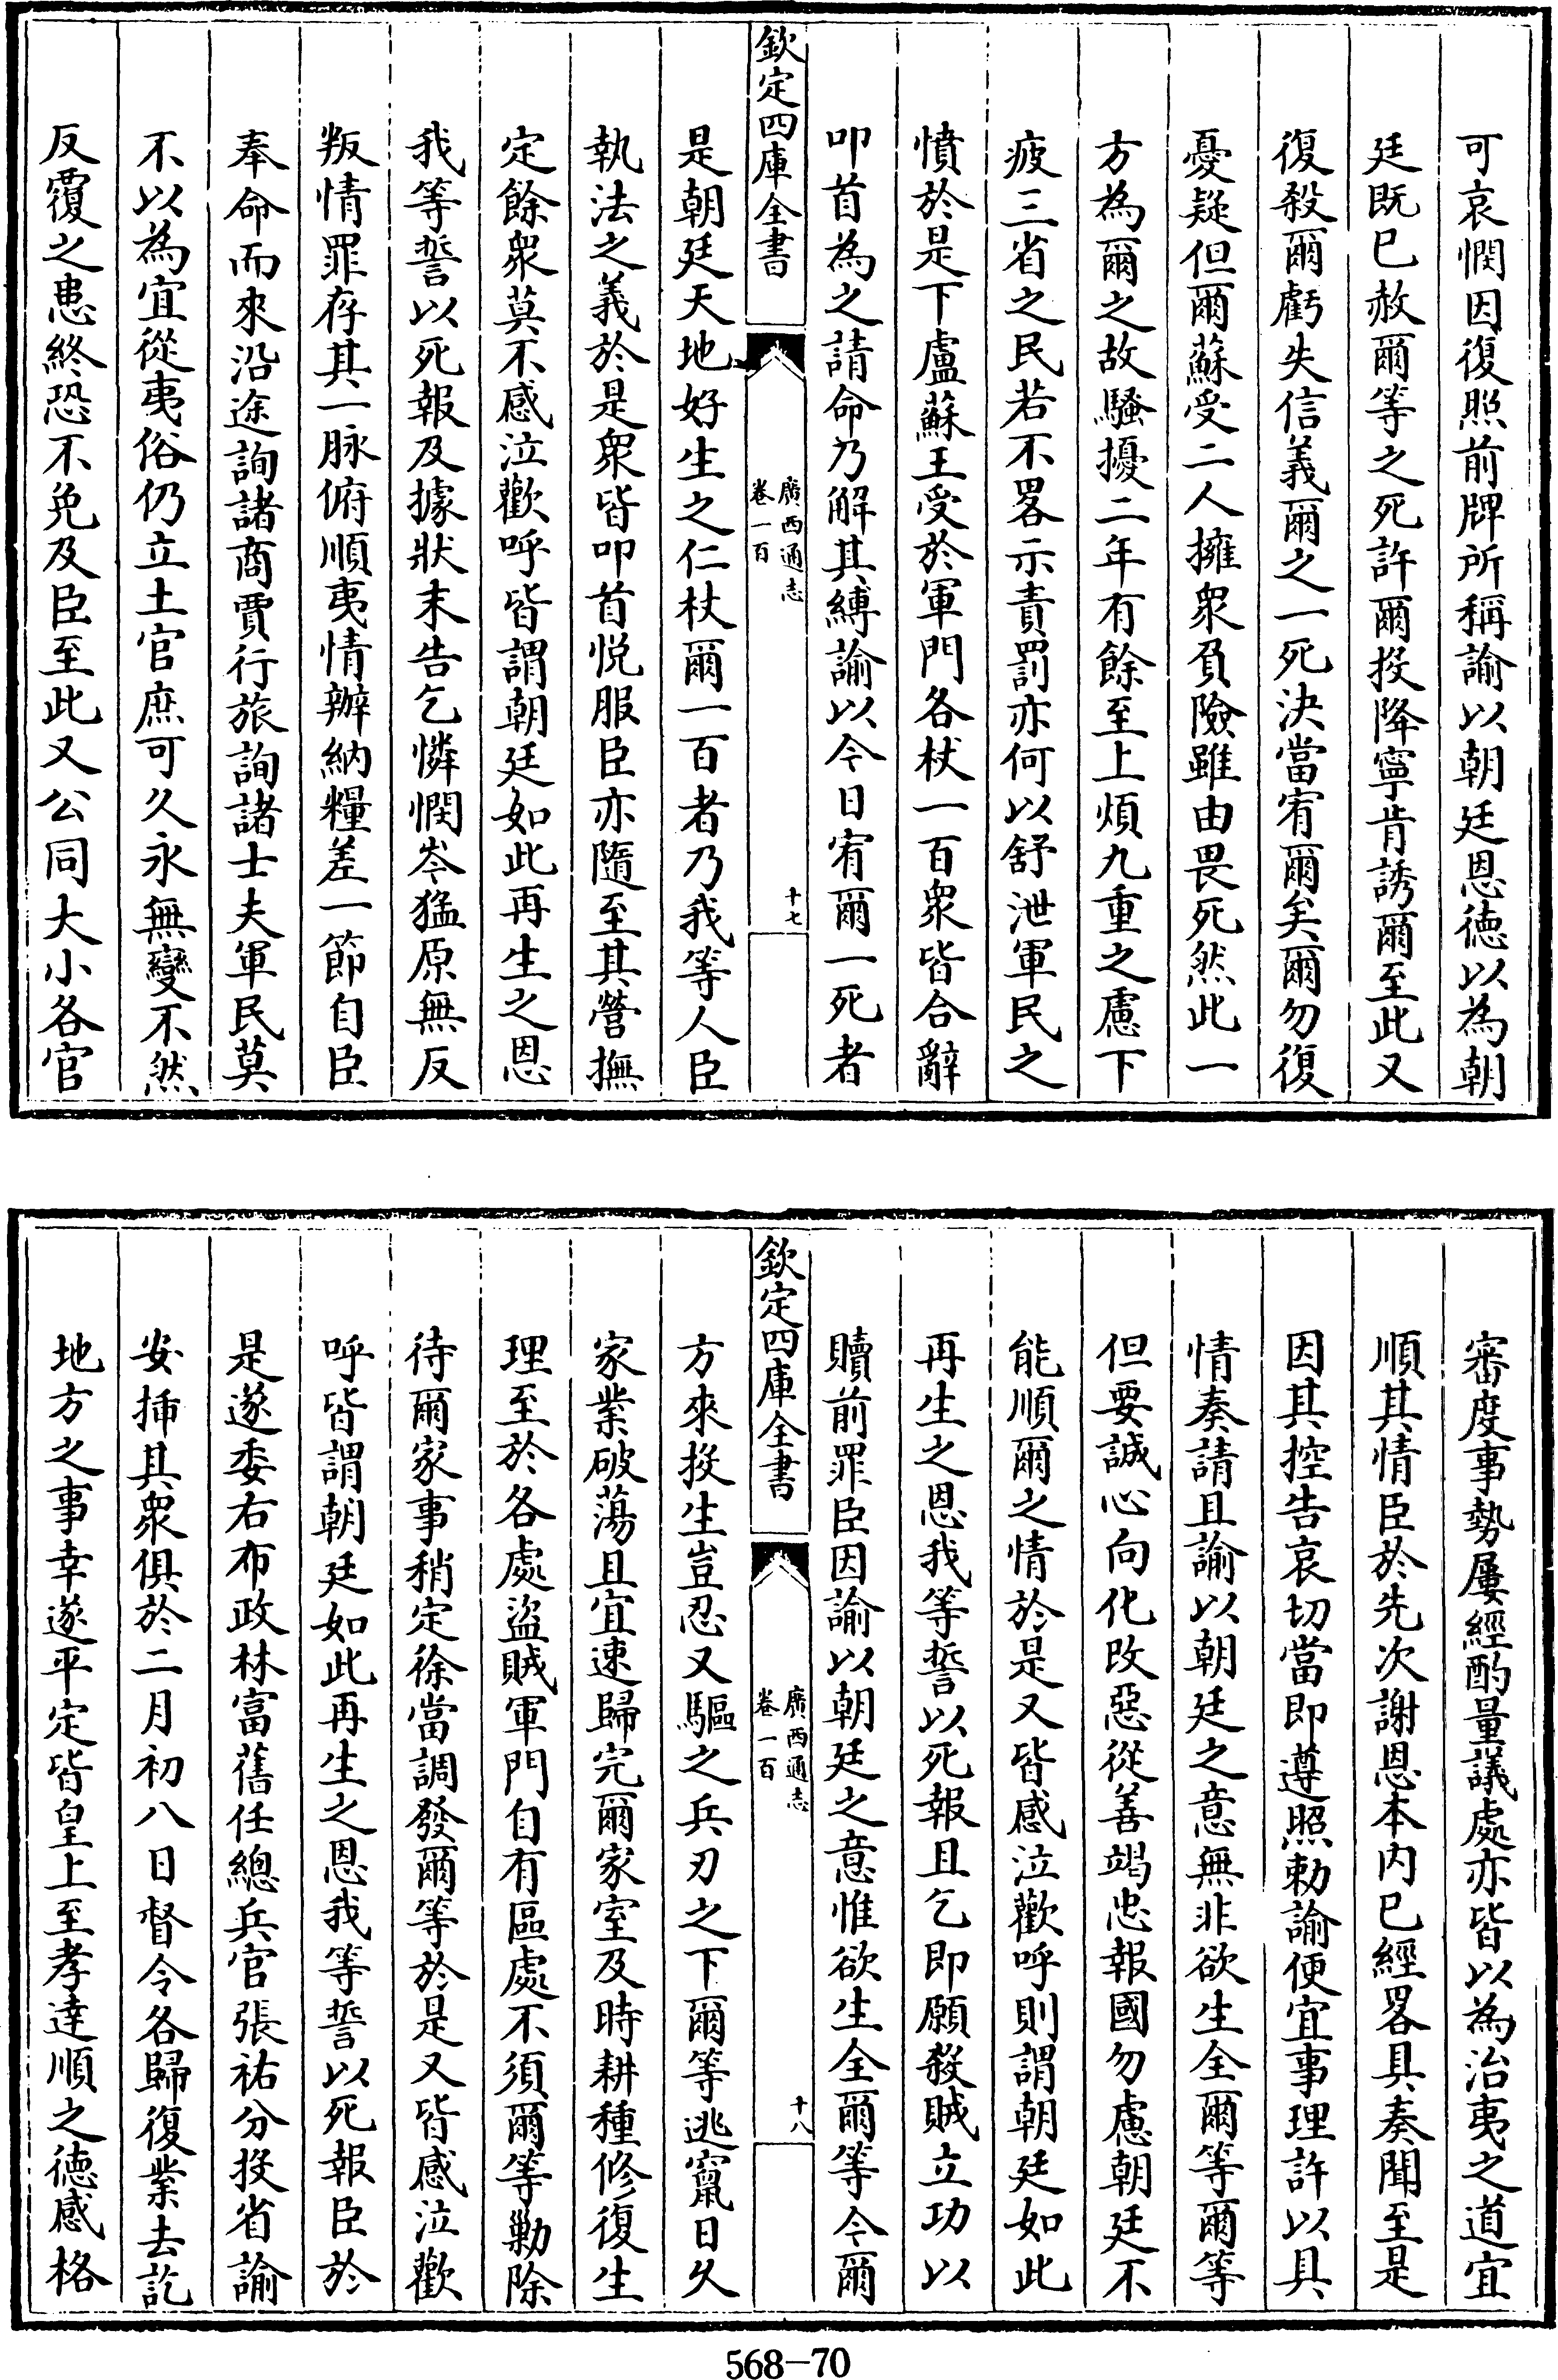 可哀憫因復照前牌所稱諭以朝廷恩德以為朝
廷既已赦爾等之死許爾投降寧肯誘爾至此又
復殺爾虧失信義爾之一死決當宥爾矣爾勿復
憂疑但爾蘇受二人擁衆負險雖由畏死然此一
方為爾之故騷擾二年有餘至上煩九重之慮下
疲三省之民若不畧示責罰亦何以舒泄軍民之
憤於是下盧蘇王受於軍門各杖一百衆皆合辭
叩首為之請命乃解其縛諭以今日宥爾一死者
欽定四庫全書
廣西通志
卷一百
十七
是朝廷天地好生之仁杖爾一百者乃我等人臣
執法之義於是衆皆叩首悦服臣亦隨至其營撫
定餘衆莫不感泣歡呼皆謂朝廷如此再生之恩
我等誓以死報及據狀末告乞憐憫岑猛原無反
叛情罪存其一脉俯順夷情辦納糧差一節自臣
奉命而來沿途詢諸商賈行旅詢諸士夫軍民莫
不以為宜從夷俗仍立土官庶可久永無變不然
反覆之患終恐不免及臣至此又公同大小各官
審度事勢屢經酌量議處亦皆以為治夷之道宜
順其情臣於先次謝恩本内已經畧具奏聞至是
因其控告哀切當即遵照勅諭便宜事理許以具
情奏請且諭以朝廷之意無非欲生全爾等爾等
但要誠心向化改惡從善竭忠報國勿慮朝廷不
能順爾之情於是又皆感泣歡呼則謂朝廷如此
再生之恩我等誓以死報且乞即願殺賊立功以
贖前罪臣因諭以朝廷之意惟欲生全爾等今爾
欽定四庫全書
廣西通志
卷一百
十八
方來投生豈忍又驅之兵刃之下爾等逃竄日久
家業破蕩且宜速歸完爾家室及時耕種修復生
理至於各處盜賊軍門自有區處不須爾等勦除
待爾家事稍定徐當調發爾等於是又皆感泣歡
呼皆謂朝廷如此再生之恩我等誓以死報臣於
是遂委右布政林富舊任總兵官張祐分投省諭
安揷其衆俱於二月初八日督令各歸復業去訖
地方之事幸遂平定皆皇上至孝達順之德感格
568—70